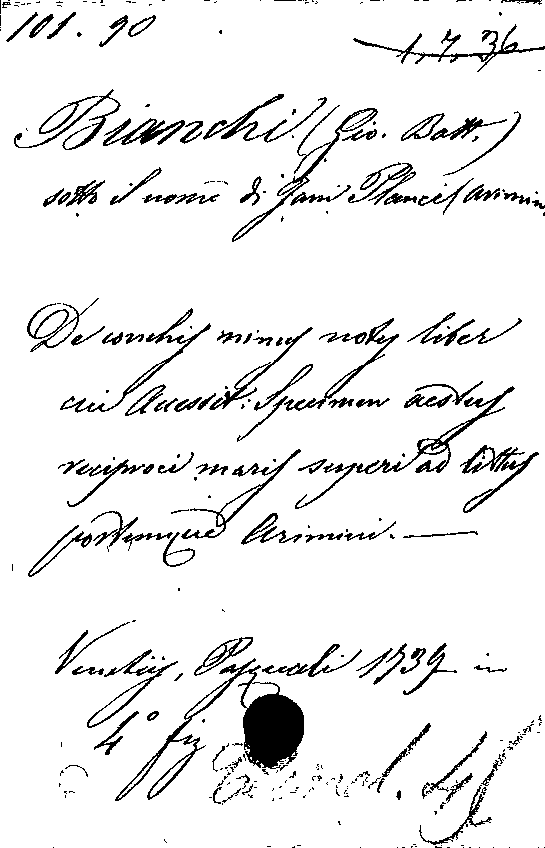 101. 90
1. 7. 36
Bianchi (Gio. Batt.)
sotto il nome di Jani Planci (Arimin.
De conchis minus notis liber
cui Accessit: Specimen aestus
reciproci maris superi ad littus
portumque Arimini. —
Venetiis, Pasquali 1739 in
4° fig